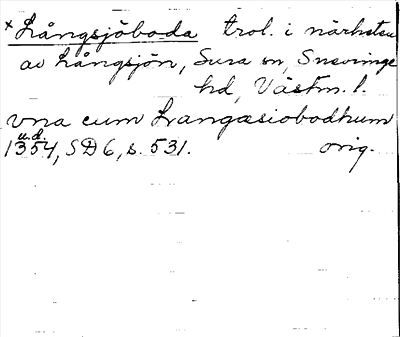 × Långsjöboda trol. i närheten
av Långsjön, Sura sn, Snevringe
hd, Västm. l.
vna cum Langæsiobodhum
u.d.
1354, SD 6, s. 531. orig.